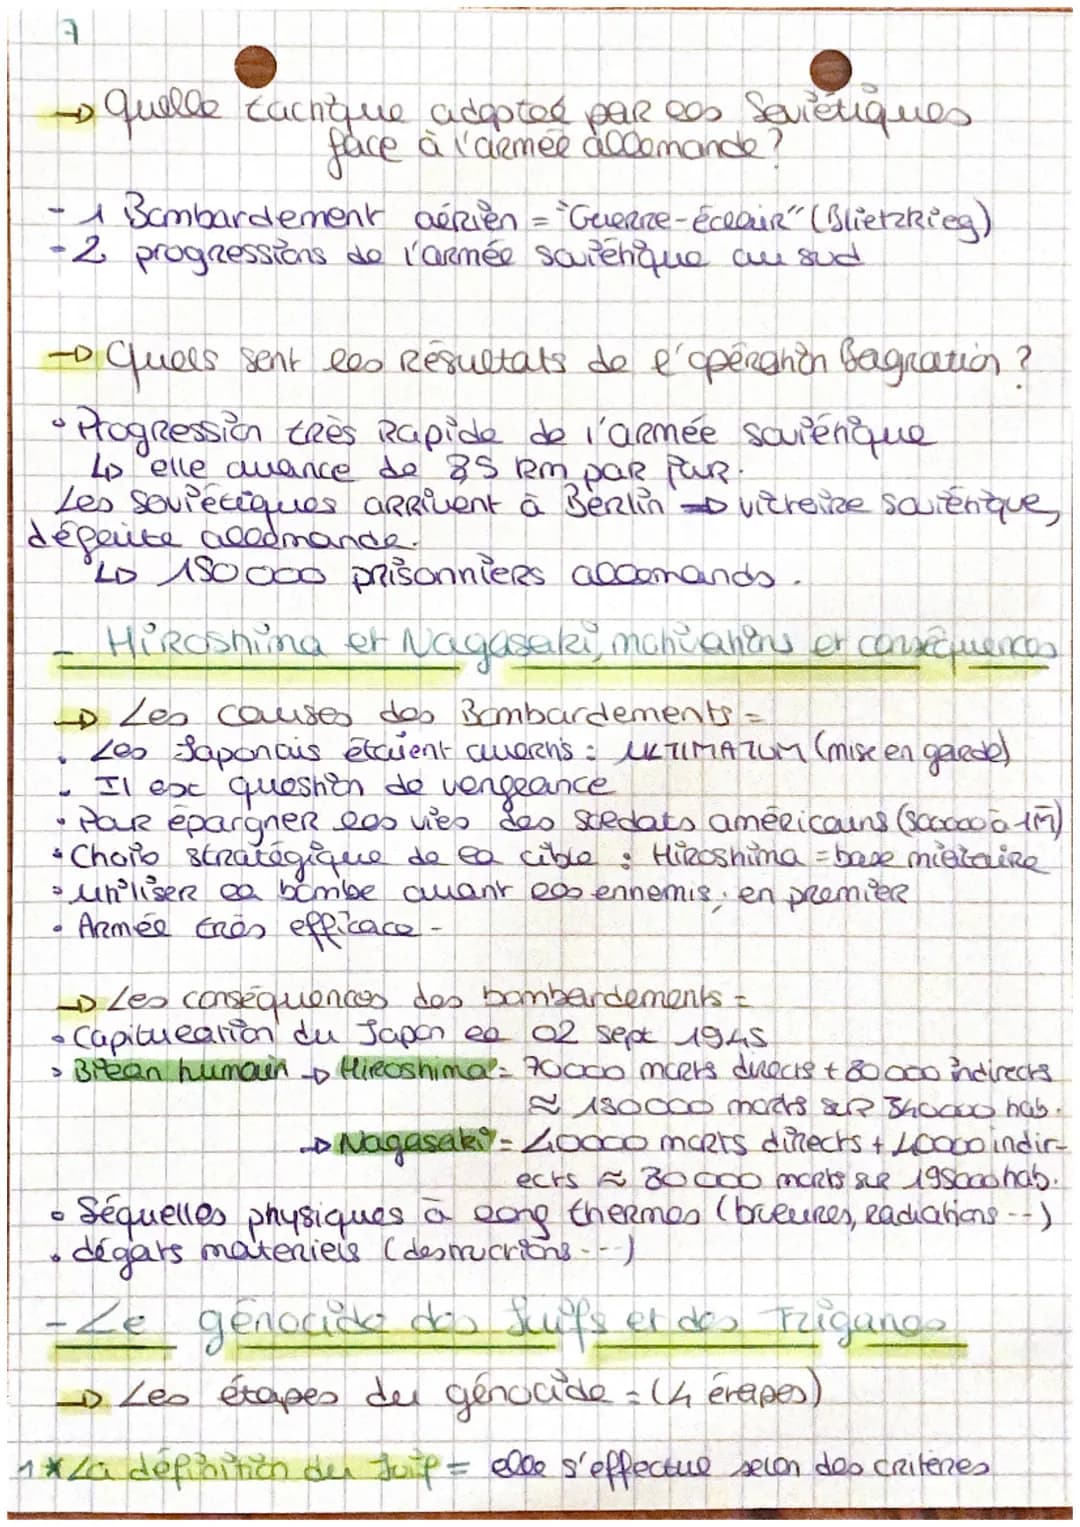 7
→ Quelle tactique adoptée par les Soviétiques
face à l'armée allemande ?
- 1 Bombardement aérien = "Guerre-éclair" (Blietzkrieg)
- 2 progressions de l'armée soviétique au sud
→ Quels sont les résultats de l'opération Bagration ?
• Progression très rapide de l'armée soviétique
↳ elle avance de 85 km par jour.
Les soviétiques arrivent à Berlin → victoire soviétique,
défaite allemande.
↳ 150 000 prisonniers allemands.
- Hiroshima et Nagasaki, motivations et conséquences
→ Les causes des Bombardements =
• Les Japonais étaient avertis : ULTIMATUM (mise en garde)
• Il est question de vengeance
• Par épargner les vies des soldats américains (500000 à 1M)
• Choix stratégique de la cible : Hiroshima = base militaire
• utiliser la bombe avant les ennemis, en premier
• Armée très efficace -
→ Les conséquences des bombardements =
• Capitulation du Japon le 02 sept 1945
• Bilan humain → Hiroshima = 70000 morts directs + 80 000 indirects
≈ 150000 morts sur 340000 hab.
→ Nagasaki = 40000 morts directs + 40000 indir-
ects ≈ 80 000 morts sur 195000 hab.
• Séquelles physiques à long thermes (brûlures, radiations --)
• dégâts matériels (destructions ---)
- Le génocide des Juifs et des Tziganes
→ Les étapes du génocide = (4 étapes)
1 * La définition du Juif = elle s'effectue selon des critères